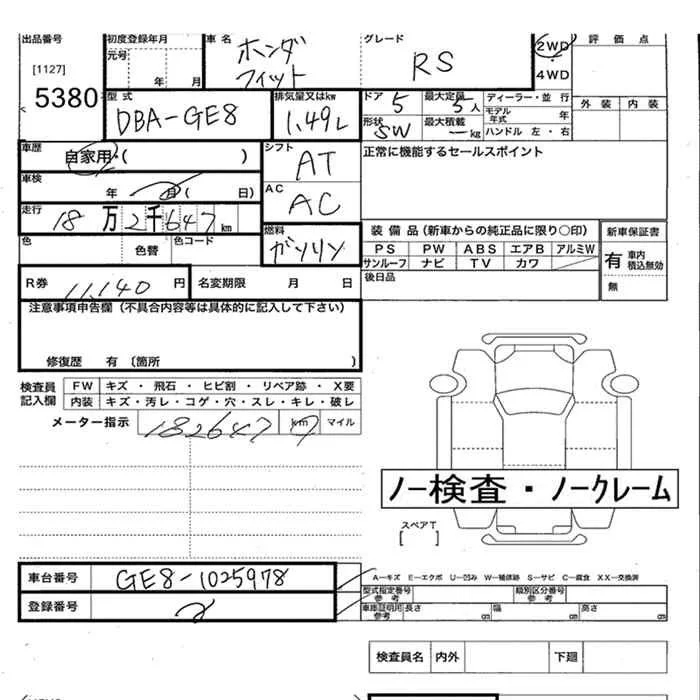 出品番号 初度登録年月 車名 グレード 2WD 評価点
[1127] 元号 ホンダ RS ・
年 月 フィット 4WD
5380 型式 排気量又はkw ドア 5 最大定員 5人 ディーラー・並行 外装 内装
DBA-GE8 1.49L 形状 SW 最大積載 ーkg モデル年式 年
ハンドル 左・右
車歴 自家用・( ) シフト AT 正常に機能するセールスポイント
車検 年 月( 日) AC AC
走行 18万2千647km
色 色替 色コード 燃料 ガソリン 装備品(新車からの純正品に限り○印) 新車保証書
PS PW ABS エアB アルミW 有 車内積込無効
サンルーフ ナビ TV カワ
R券 11,140円 名変期限 月 日 後日品 無
注意事項申告欄(不具合内容等は具体的に記入して下さい)
修復歴 有 〔箇所 )
検査員記入欄 FW キズ・飛石・ヒビ割・リペア跡・X要
内装 キズ・汚レ・コゲ・穴・スレ・キレ・破レ
メーター指示 182647 km マイル
ノー検査・ノークレーム
スペアT
[ ]
車台番号 GE8-1025978
A－キズ E－エクボ U－凹み W－補修跡 S－サビ C－腐食 XX－交換済
型式指定番号 参考 類別区分番号 参考
登録番号 車庫証明用 参考 長さ cm 幅 cm 高さ cm
検査員名 内外 下廻